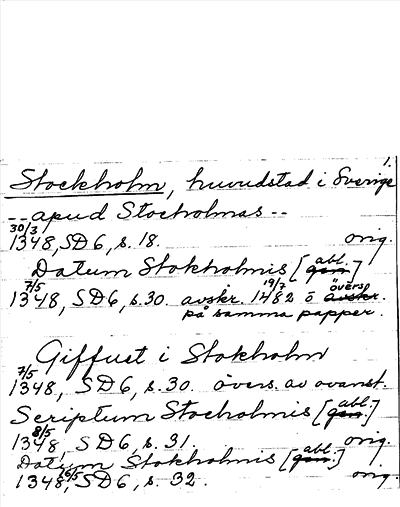 1.
Stockholm, huvudstad i Sverige
-- apud Stocholmas --
30/3 1348, SD6, s. 18. orig.
Datum Stokholmis [gen. abl.]
7/5 1348, SD6, s. 30. avskr. 19/7 1482 o avskr. övers.
på samma papper.
Giffuet i Stokholm
7/5 1348, SD6, s. 30. övers. av ovanst.
Scriptum Stocholmis [gen. abl.]
8/5 1348, SD6, s. 31. orig.
Datum Stokholmis [gen. abl.]
1348, SD6, s. 32. orig.